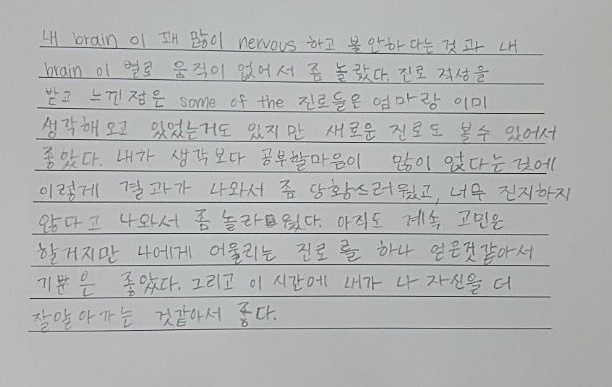 내 brain이 꽤 많이 nervous 하고 불안하다는 것과 내
brain이 별로 움직이 없어서 좀 놀랐다. 진로 적성을
받고 느낀점은 some of the 진로들은 엄마랑 이미
생각해 오고 있었는거도 있지만 새로운 진로도 볼수 있어서
좋았다. 내가 생각보다 공부할마음이 많이 없다는 것에
이렇게 결과가 나와서 좀 당황스러웠고, 너무 진지하지
않다고 나와서 좀 놀라웠다. 아직도 계속 고민은
할거지만 나에게 어울리는 진로를 하나 얻은것같아서
기분은 좋았다. 그리고 이 시간에 내가 나 자신을 더
잘알아가는 것같아서 좋다.